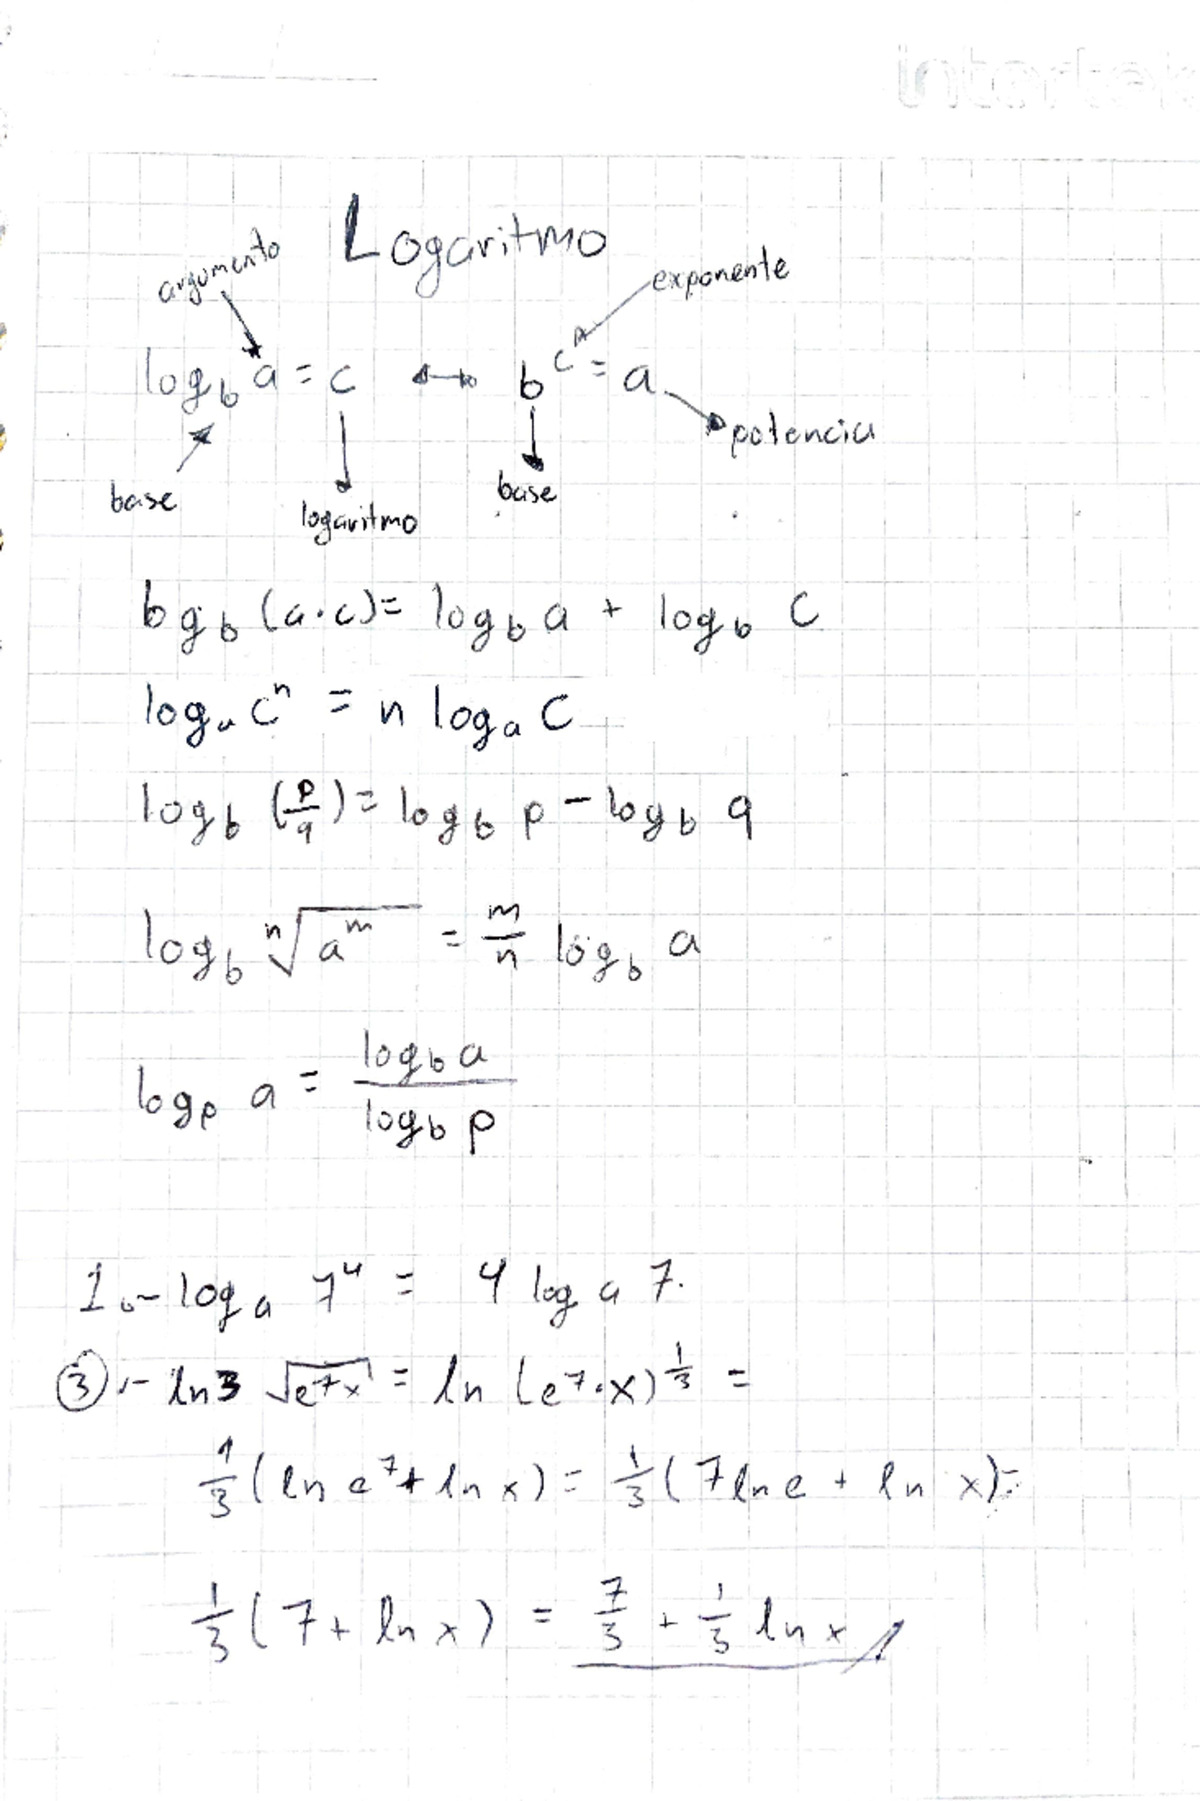 intertek
Logaritmo
argumento
exponente
log_b a = c ↔ b^c = a
potencia
base
logaritmo
base
log_b (a·c) = log_b a + log_b c
log_a c^n = n log_a c
log_b (p/q) = log_b p - log_b q
log_b ⁿ√(a^m) = m/n log_b a
log_p a = log_b a / log_b p
1.- log_a 7^4 = 4 log_a 7.
③.- ln 3 √(e^7x) = ln (e^7·x)^1/3 =
1/3 (ln e^7 + ln x) = 1/3 (7 ln e + ln x) =
1/3 (7 + ln x) = 7/3 + 1/3 ln x